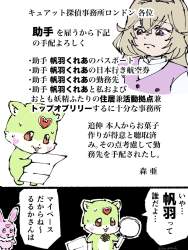 キュアット探偵事務所ロンドン 各位
助手 を雇うから下記
の手配よろしく
・助手 帆羽くれあのパスポート
・助手 帆羽くれあの日本行き航空券
・助手 帆羽くれあの勤務先
・助手 帆羽くれあと私および
おとも妖精ふたりの住居兼活動拠点兼
トップオブリリーするに十分な事務所
追伸 本人からお菓子
作りが得意と聴取済
み。その点考慮して勤
務先を手配されたし。
森 亜
いや…
帆羽って
誰だよ…
マイペース
だからね〜
るるかさんは